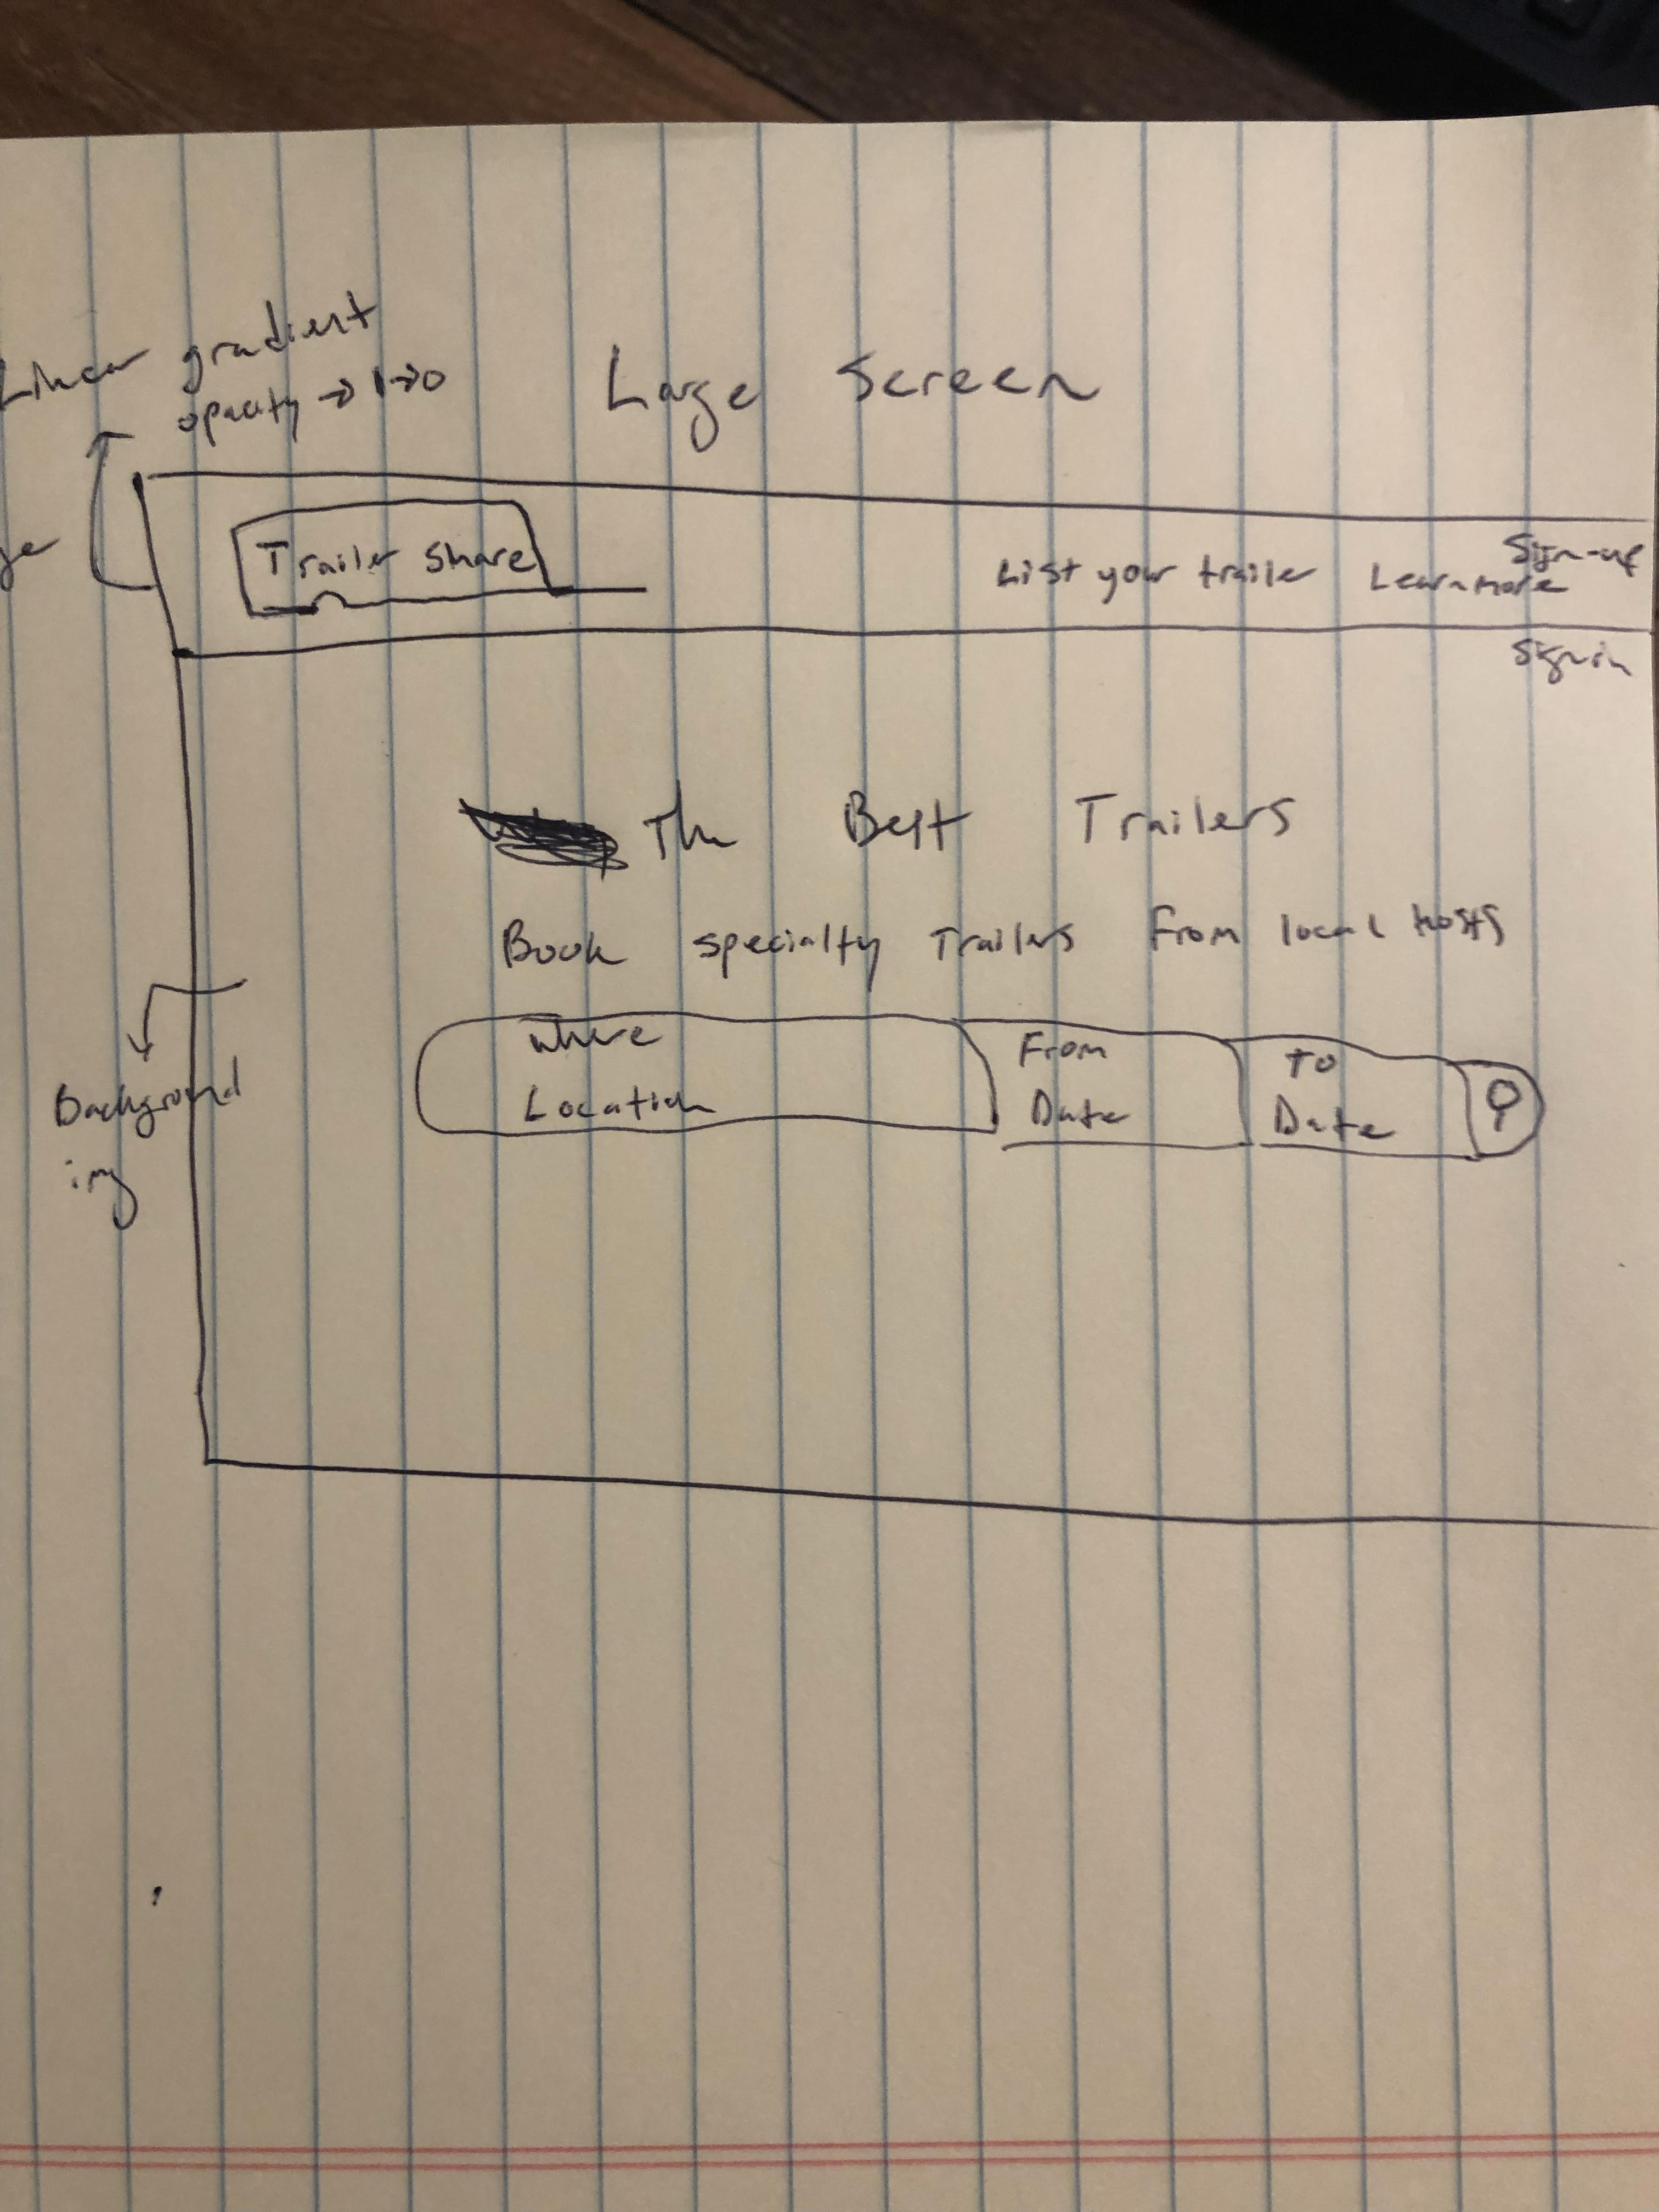 Linear gradient
opacity → 1→0
Large Screen
Trailer Share
List your trailer
Learn more
Sign-up
Sign in
The Best Trailers
Book specialty Trailers From local hosts
Where
Location
From
Date
To
Date
Background
img